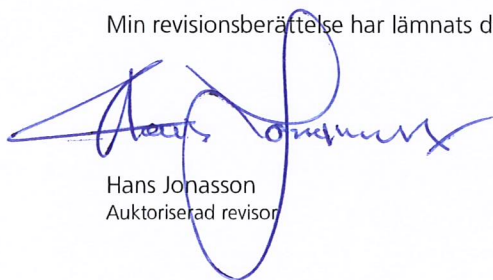 Min revisionsberättelse har lämnats d
Hans Jonasson
Hans Jonasson
Auktoriserad revisor